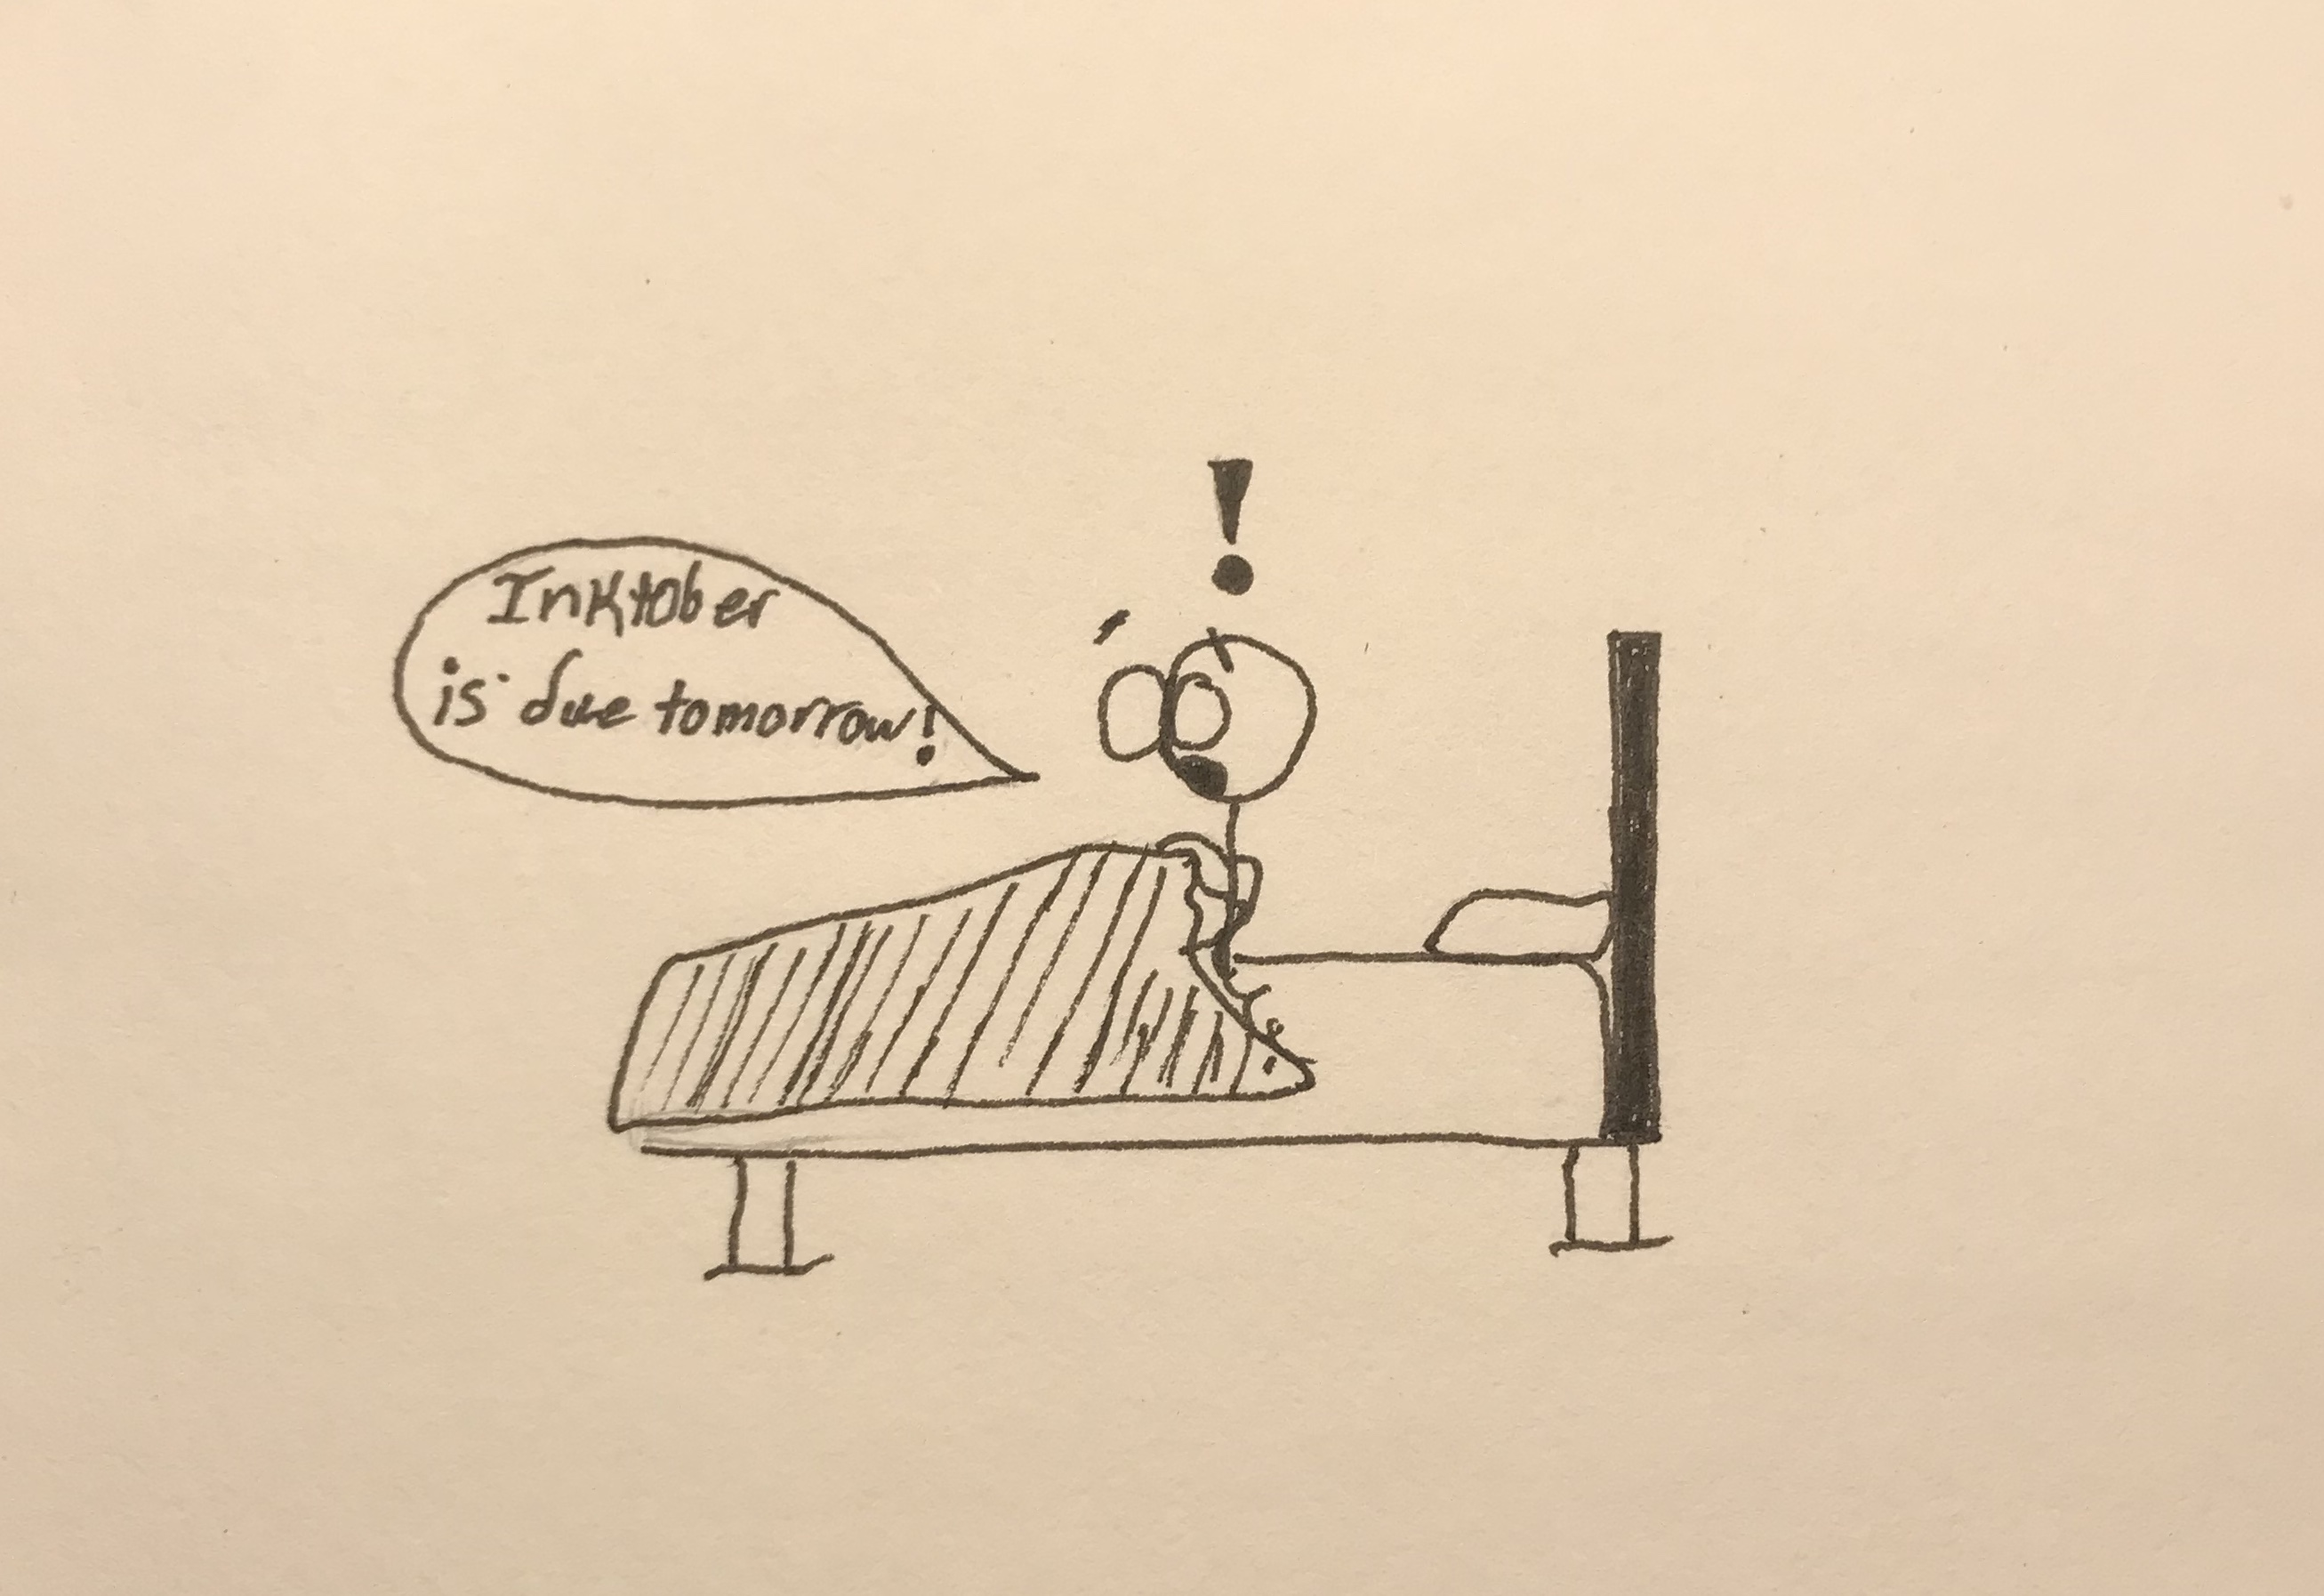 !
Inktober
is due tomorrow!